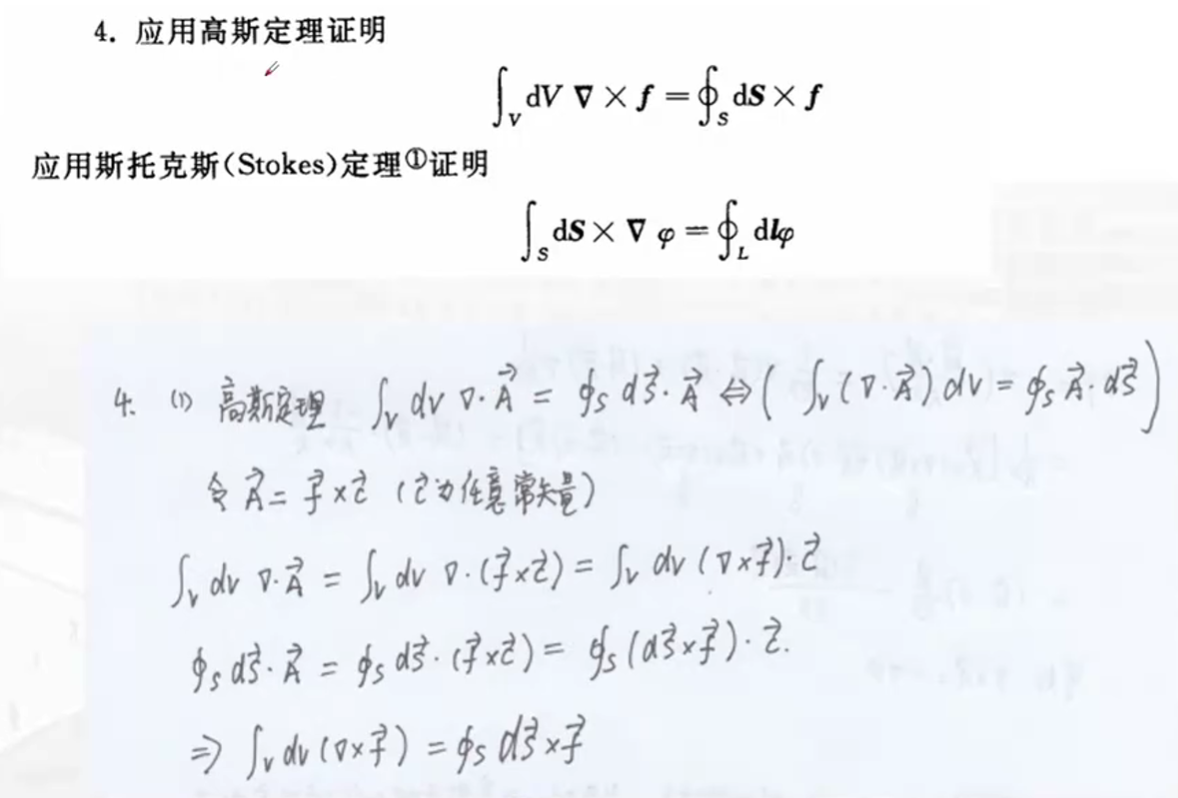 4. 应用高斯定理证明
∫_V dV ∇ × f = ∮_S dS × f
应用斯托克斯(Stokes)定理①证明
∫_S dS × ∇ φ = ∮_L dlφ
4. (1) 高斯定理 ∫_V dv ∇·A⃗ = ∮_S dS⃗·A⃗ ⇔ ( ∫_V (∇·A⃗) dv = ∮_S A⃗·dS⃗ )
令 A⃗ = f⃗ × c⃗ (c⃗为任意常矢量)
∫_V dv ∇·A⃗ = ∫_V dv ∇·(f⃗×c⃗) = ∫_V dv (∇×f⃗)·c⃗
∮_S dS⃗·A⃗ = ∮_S dS⃗·(f⃗×c⃗) = ∮_S (dS⃗×f⃗)·c⃗.
⇒ ∫_V dv (∇×f⃗) = ∮_S dS⃗×f⃗